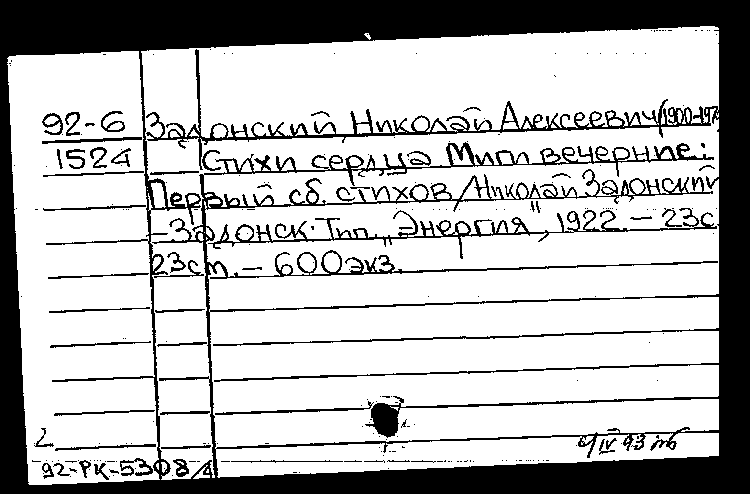 92-6 Задонский, Николай Алексеевич (1900-197
1524 Стихи сердца Миги вечерние:
Первый сб. стихов / Николай Задонский
- Задонск: Тип. "Энергия", 1922. - 23с
23см. - 600экз.
2
IV 93
92-РК-5308/4